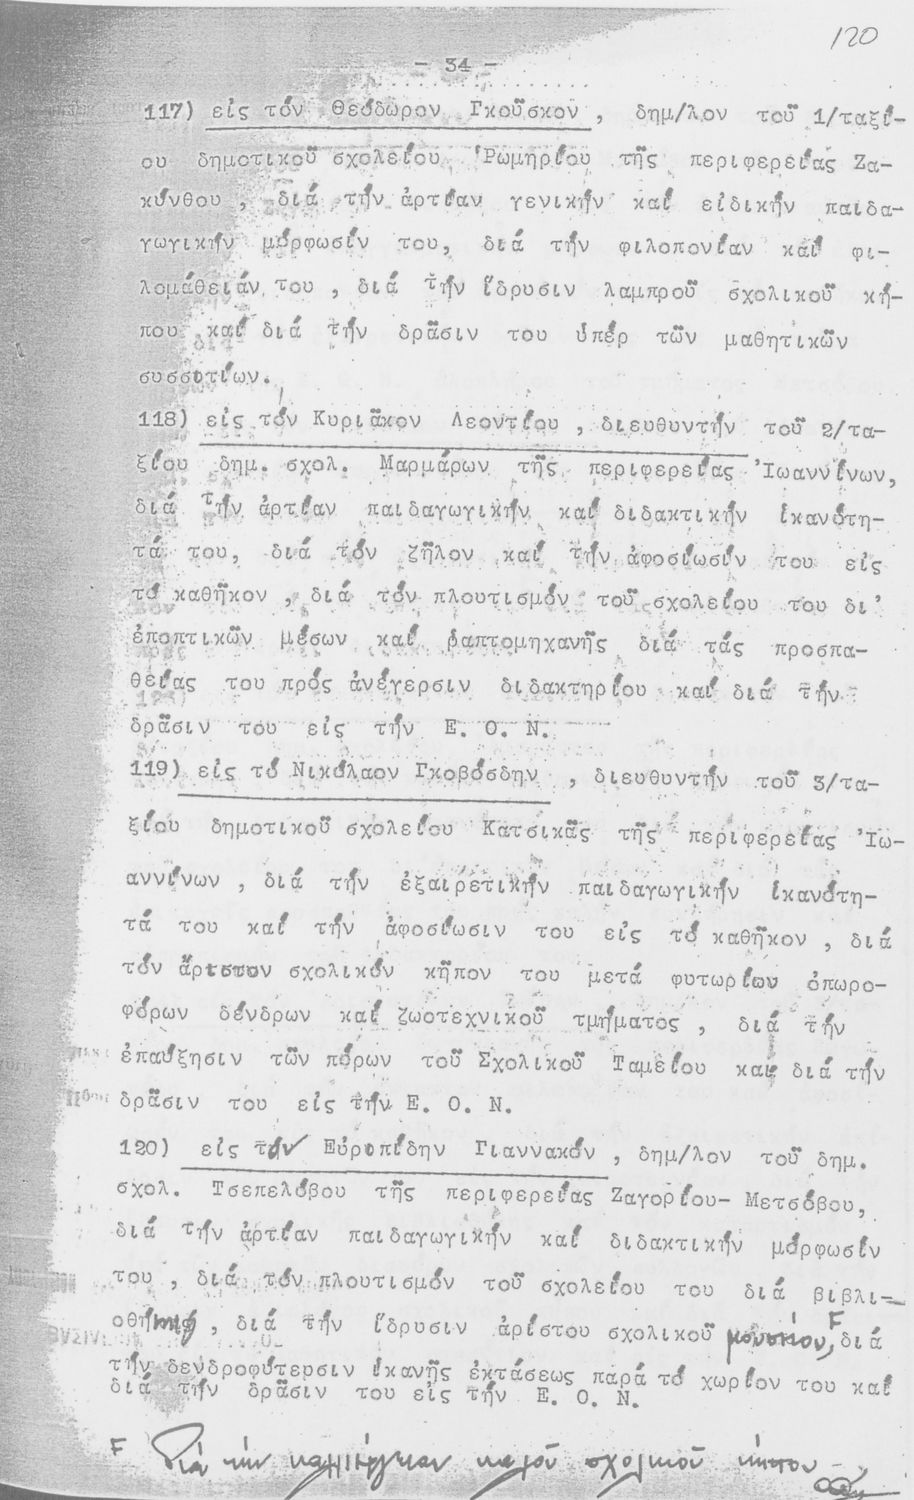 120
- 34 -
117) εἰς τόν Θεόδωρον Γκοῦσκον , δημ/λον τοῦ 1/ταξί-
ου δημοτικοῦ σχολείου Ρωμηρίου τῆς περιφερείας Ζα-
κύνθου , διά τήν ἀρτίαν γενικήν καί εἰδικήν παιδα-
γωγικήν μόρφωσίν του, διά τήν φιλοπονίαν καί φι-
λομάθειάν του , διά τήν ἵδρυσιν λαμπροῦ σχολικοῦ κή-
που καί διά τήν δρᾶσιν του ὑπέρ τῶν μαθητικῶν
συσσιτίων.
118) εἰς τόν Κυριᾶκον Λεοντίου , διευθυντήν τοῦ 2/τα-
ξίου δημ. σχολ. Μαρμάρων τῆς περιφερείας Ἰωαννίνων,
διά τήν ἀρτίαν παιδαγωγικήν καί διδακτικήν ἱκανότη-
τά του, διά τόν ζῆλον καί τήν ἀφοσίωσίν του εἰς
τό καθῆκον , διά τόν πλουτισμόν τοῦ σχολείου του δι'
ἐποπτικῶν μέσων καί ῥαπτομηχανῆς διά τάς προσπα-
θείας του πρός ἀνέγερσιν διδακτηρίου καί διά τήν
δρᾶσιν του εἰς τήν Ε. Ο. Ν.
119) εἰς τό Νικόλαον Γκοβόσδην , διευθυντήν τοῦ 3/τα-
ξίου δημοτικοῦ σχολείου Κατσικᾶς τῆς περιφερείας Ἰω-
αννίνων , διά τήν ἐξαιρετικήν παιδαγωγικήν ἱκανότη-
τά του καί τήν ἀφοσίωσιν του εἰς τό καθῆκον , διά
τόν ἄριστον σχολικόν κῆπον του μετά φυτωρίου ὀπωρο-
φόρων δένδρων καί ζωοτεχνικοῦ τμήματος , διά τήν
ἐπαύξησιν τῶν πόρων τοῦ Σχολικοῦ Ταμείου καί διά τήν
δρᾶσιν του εἰς τήν Ε. Ο. Ν.
120) εἰς τόν Εὐριπίδην Γιαννακόν , δημ/λον τοῦ δημ.
σχολ. Τσεπελόβου τῆς περιφερείας Ζαγορίου- Μετσόβου,
διά τήν ἀρτίαν παιδαγωγικήν καί διδακτικήν μόρφωσίν
του , διά τόν πλουτισμόν τοῦ σχολείου του διά βιβλι-
οθήκης , διά τήν ἵδρυσιν ἀρίστου σχολικοῦ μουσείου, F διά
τήν δενδροφύτερσιν ἱκανῆς ἐκτάσεως παρά τό χωρίον του καί
διά τήν δρᾶσιν του εἰς τήν Ε. Ο. Ν.
F Διά τήν καλλιέργειαν καλοῦ σχολικοῦ κήπου